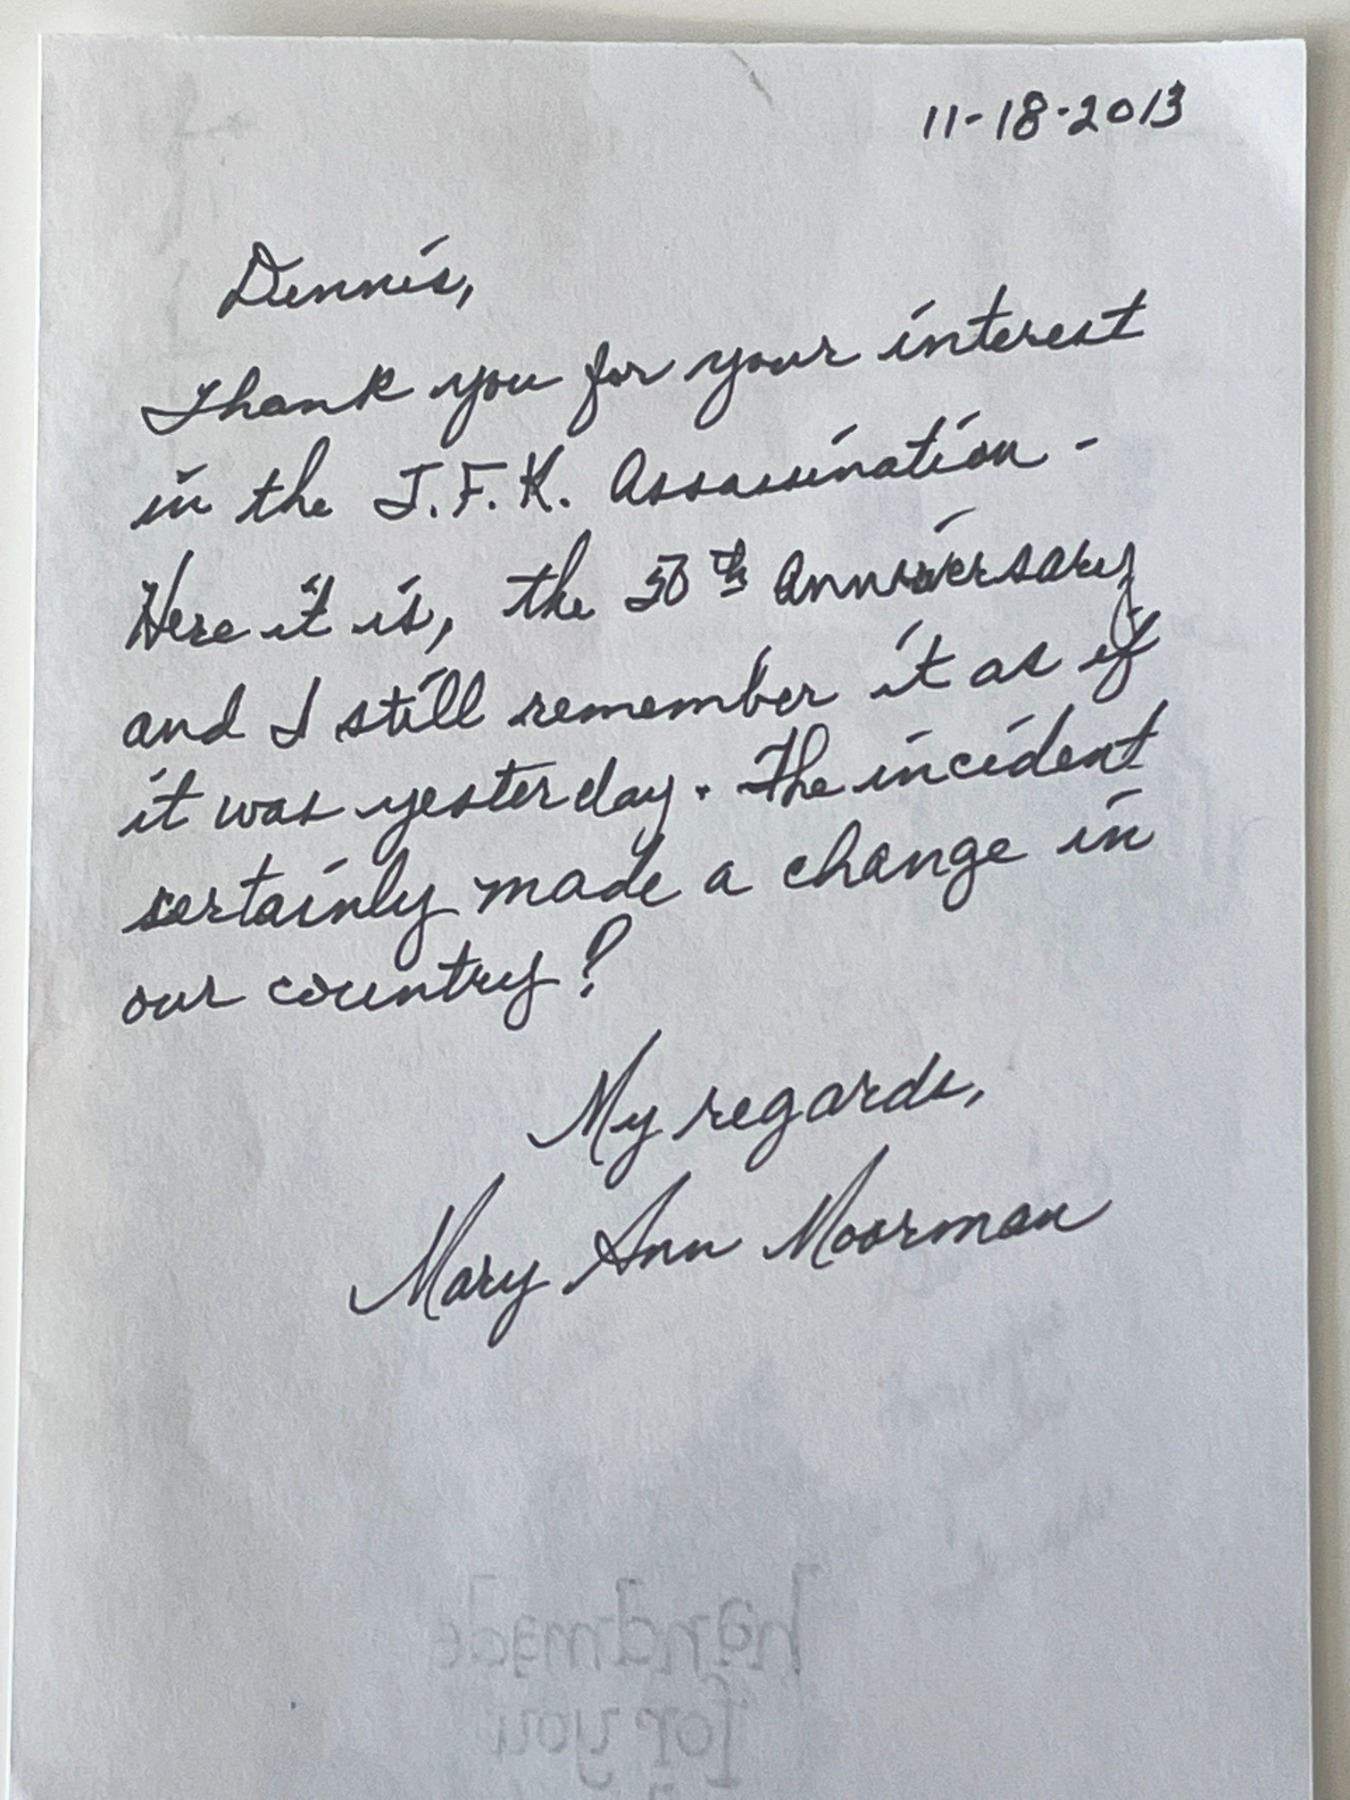 11-18-2013
Dennis,
Thank you for your interest
in the J.F.K. Assassination -
Here it is, the 50th Anniversary
and I still remember it as if
it was yesterday. The incident
certainly made a change in
our country?
My regards,
Mary Ann Moorman
handmade
for you